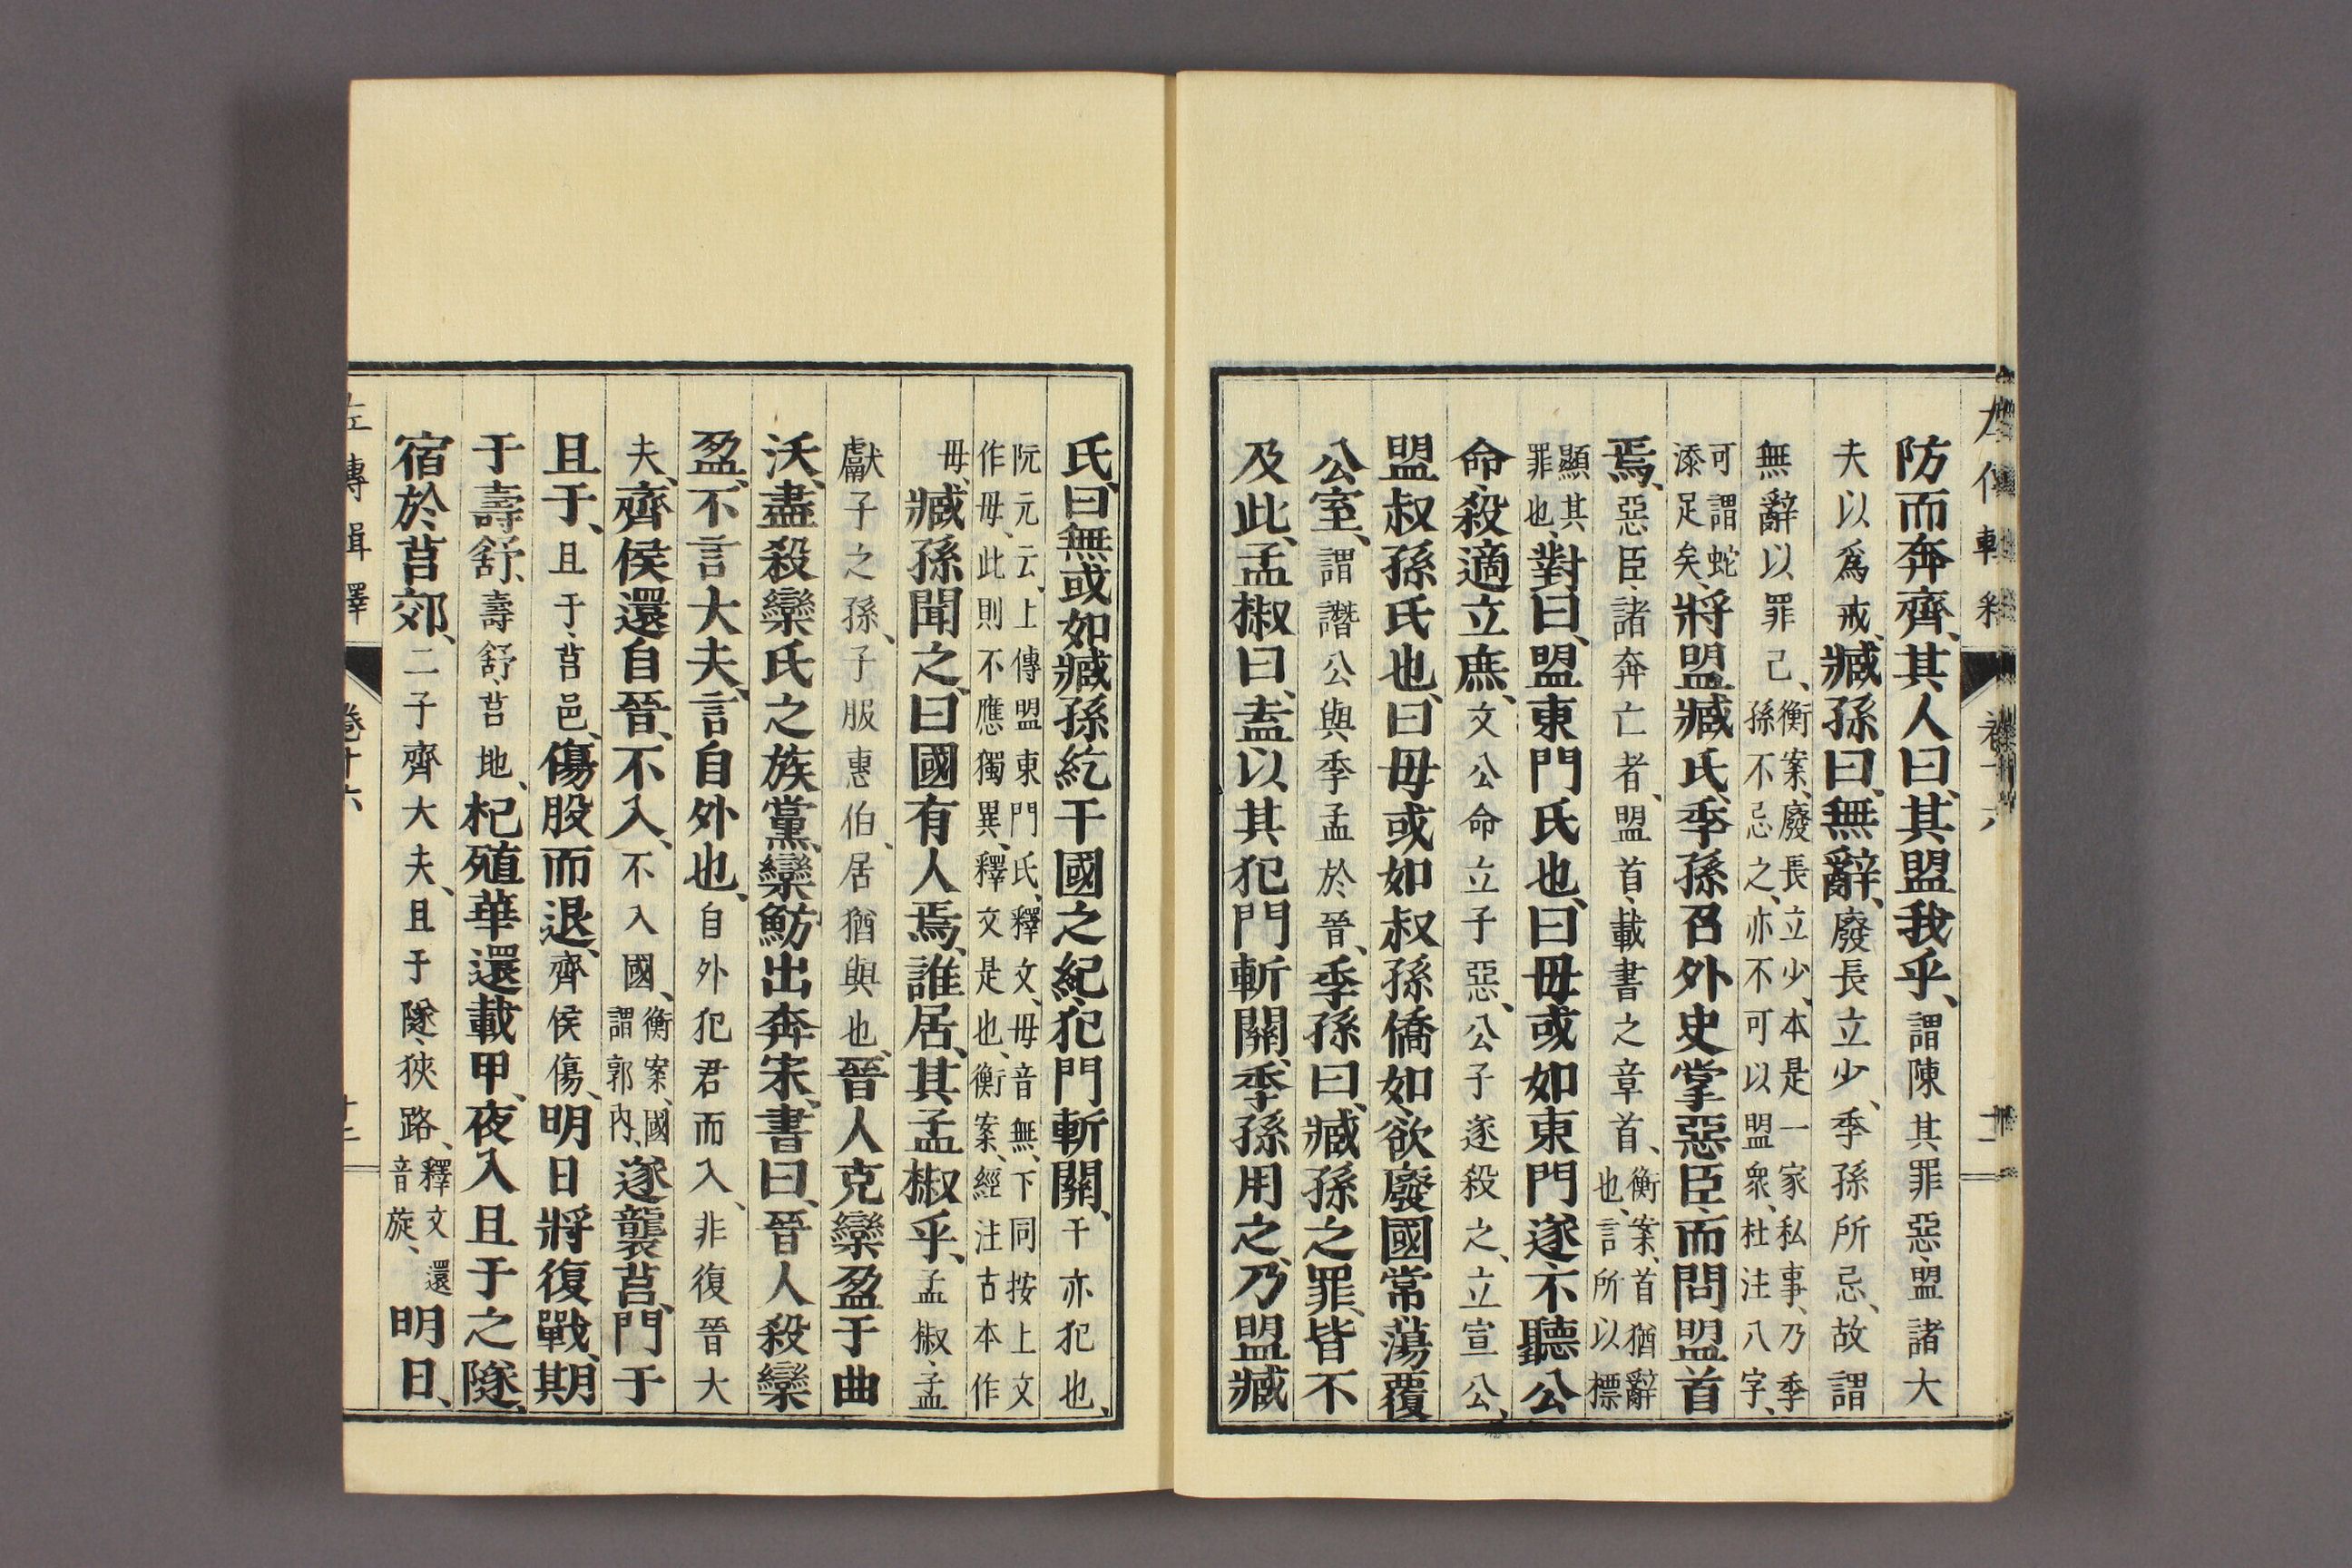 防而奔齊、其人曰、其盟我乎、謂陳其罪惡、盟諸大
夫以爲戒、臧孫曰、無辭、廢長立少、季孫所忌、故謂
無辭以罪己、衡案、廢長立少、本是一家私事、乃季孫不忌之、亦不可以盟衆、杜注八字、
可謂蛇添足矣、將盟臧氏、季孫召外史掌惡臣、而問盟首
焉、惡臣、諸奔亡者、盟首、載書之章首、衡案、首猶辭也、言所以標
顯其罪也、對曰、盟東門氏也、曰毋或如東門遂、不聽公
命、殺適立庶、文公命立子惡、公子遂殺之、立宣公、
盟叔孫氏也、曰毋或如叔孫僑如、欲廢國常蕩覆
公室、謂譖公與季孟於晉、季孫曰、臧孫之罪、皆不
及此、孟椒曰、盍以其犯門斬關、季孫用之、乃盟臧
氏、曰無或如臧孫紇干國之紀、犯門斬關、干亦犯也、
阮元云、上傳盟東門氏、釋文、毋音無、下同按上文作毋、此則不應獨異、釋文是也、衡案、經注古本作
毋、臧孫聞之、曰國有人焉、誰居、其孟椒乎、孟椒、孟
獻子之孫、子服惠伯、居猶與也、晉人克欒盈于曲
沃、盡殺欒氏之族黨、欒魴出奔宋、書曰、晉人殺欒
盈、不言大夫、言自外也、自外犯君而入、非復晉大
夫、齊侯還自晉、不入、不入國、衡案、國謂郭內、遂襲莒、門于
且于、且于、莒邑、傷股而退、齊侯傷、明日將復戰、期
于壽舒、壽舒、莒地、杞殖華還載甲、夜入且于之隧、
宿於莒郊、二子齊大夫、且于隧、狹路、釋文、還音旋、明日、
左傳輯釋 卷十六 十二